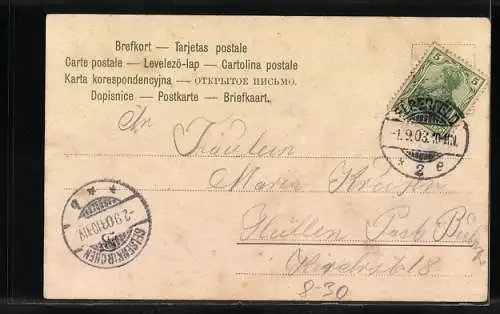 Brefkort — Tarjetas postale
Carte postale — Levelezö-lap — Cartolina postale
Karta korespondencyjna — ОТКРЫТОЕ ПИСЬМО.
Dopisnice — Postkarte — Briefkaart.
5 5
ELBERFELD
1.9.03.10-11N.
* 2 e
An
Fräulein
Maria
Hüllen Post
18
8-30
GELSENKIRCHEN
-2.9.03.10-11V.